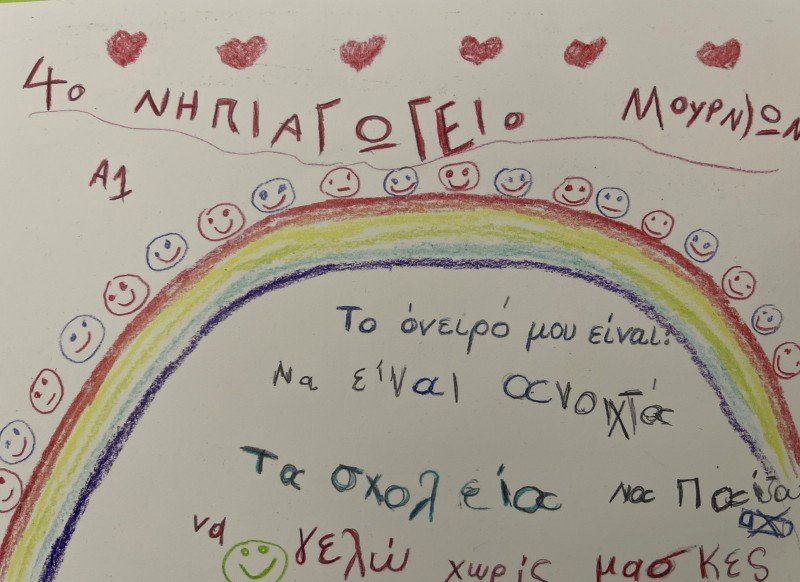 4ο ΝΗΠΙΑΓΩΓΕΙο ΜΟΥΡΝΙΩΝ
Α1
Το όνειρό μου είναι:
Να είναι ανοιχτά
Τα σχολεία να
να γελώ χωρίς μασκες